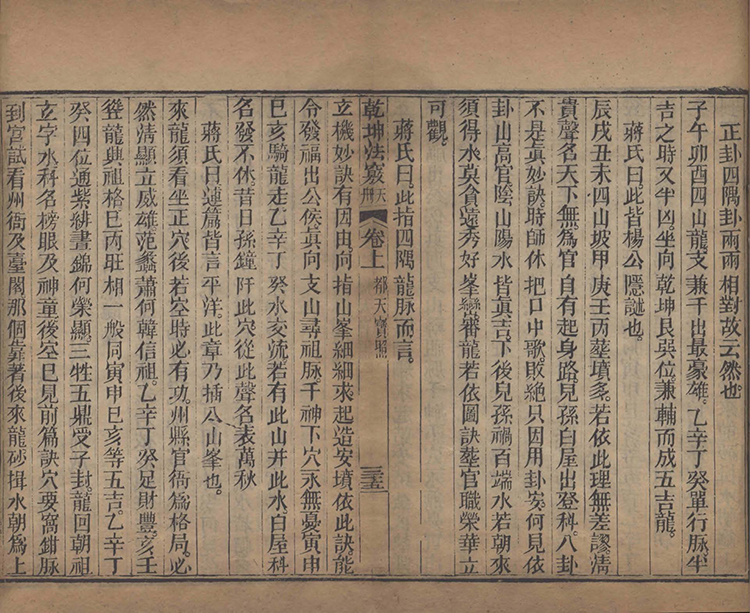 正卦四隅卦兩兩相對故云然也
子午卯酉四山龍。支兼干出最豪雄。乙辛丁癸單行脉。半
吉之時又半凶。坐向乾坤艮巽位。兼輔而成五吉龍。
蔣氏曰。此皆楊公隱謎也。
辰戌丑未四山坡。甲庚壬丙葬墳多。若依此理無差謬。淸
貴聲名天下無。爲官自有起身路。兒孫白屋出登科。八卦
不是眞妙訣。時師休把口中歌。敗絶只因用卦安。何見依
卦山高官。陰山陽水皆眞吉。下後兒孫禍百端。水若朝來
須得水。莫貪遠秀好峯巒。審龍若依圖訣葬。官職榮華立
可觀。
蔣氏曰。此指四隅龍脈而言。
乾坤法竅 天冊 卷上 都天寶照
立機妙訣有因由。向指山峯細細求。起造安墳依此訣。能
令發福出公侯。眞向支山尋祖脉。干神下穴永無憂。寅申
巳亥騎龍走。乙辛丁癸水交流。若有此山并此水。白屋科
名發不休。昔日孫鐘阡此穴。從此聲名表萬秋
蔣氏曰。蓮篇皆言平洋。此章乃指八山峯也。
來龍須看坐正穴。後若空時必有功。州縣官衙爲格局。必
然淸顯立威雄。范蠡蕭何韓信祖。乙辛丁癸足財豐。亥壬
聳龍興祖格。巳丙旺相一般同。寅申巳亥等五吉。乙辛丁
癸四位通。紫緋晝錦何榮顯。三牲五鼎受子封。龍回朝祖
立字水。科名榜眼及神童。後空已見前篇訣。穴要窩鉗脉
到宮。試看州衙及臺閣。那個靠著後來龍。砂揖水朝爲上